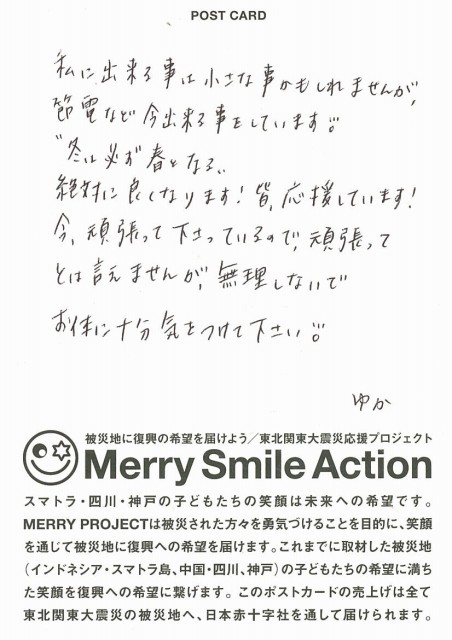 POST CARD
私に出来る事は小さな事かもしれませんが、
節電など今出来る事をしています。
"冬は必ず春となる"
絶対に良くなります!皆、応援しています!
今、頑張って下さっているので、頑張って
とは言えませんが、無理しないで
お体に十分気をつけて下さい。
ゆか
被災地に復興の希望を届けよう/東北関東大震災応援プロジェクト
Merry Smile Action
スマトラ・四川・神戸の子どもたちの笑顔は未来への希望です。
MERRY PROJECTは被災された方々を勇気づけることを目的に、笑顔
を通じて被災地に復興への希望を届けます。これまでに取材した被災地
(インドネシア・スマトラ島、中国・四川、神戸)の子どもたちの希望に満ち
た笑顔を復興への希望に繋げます。このポストカードの売上げは全て
東北関東大震災の被災地へ、日本赤十字社を通して届けられます。